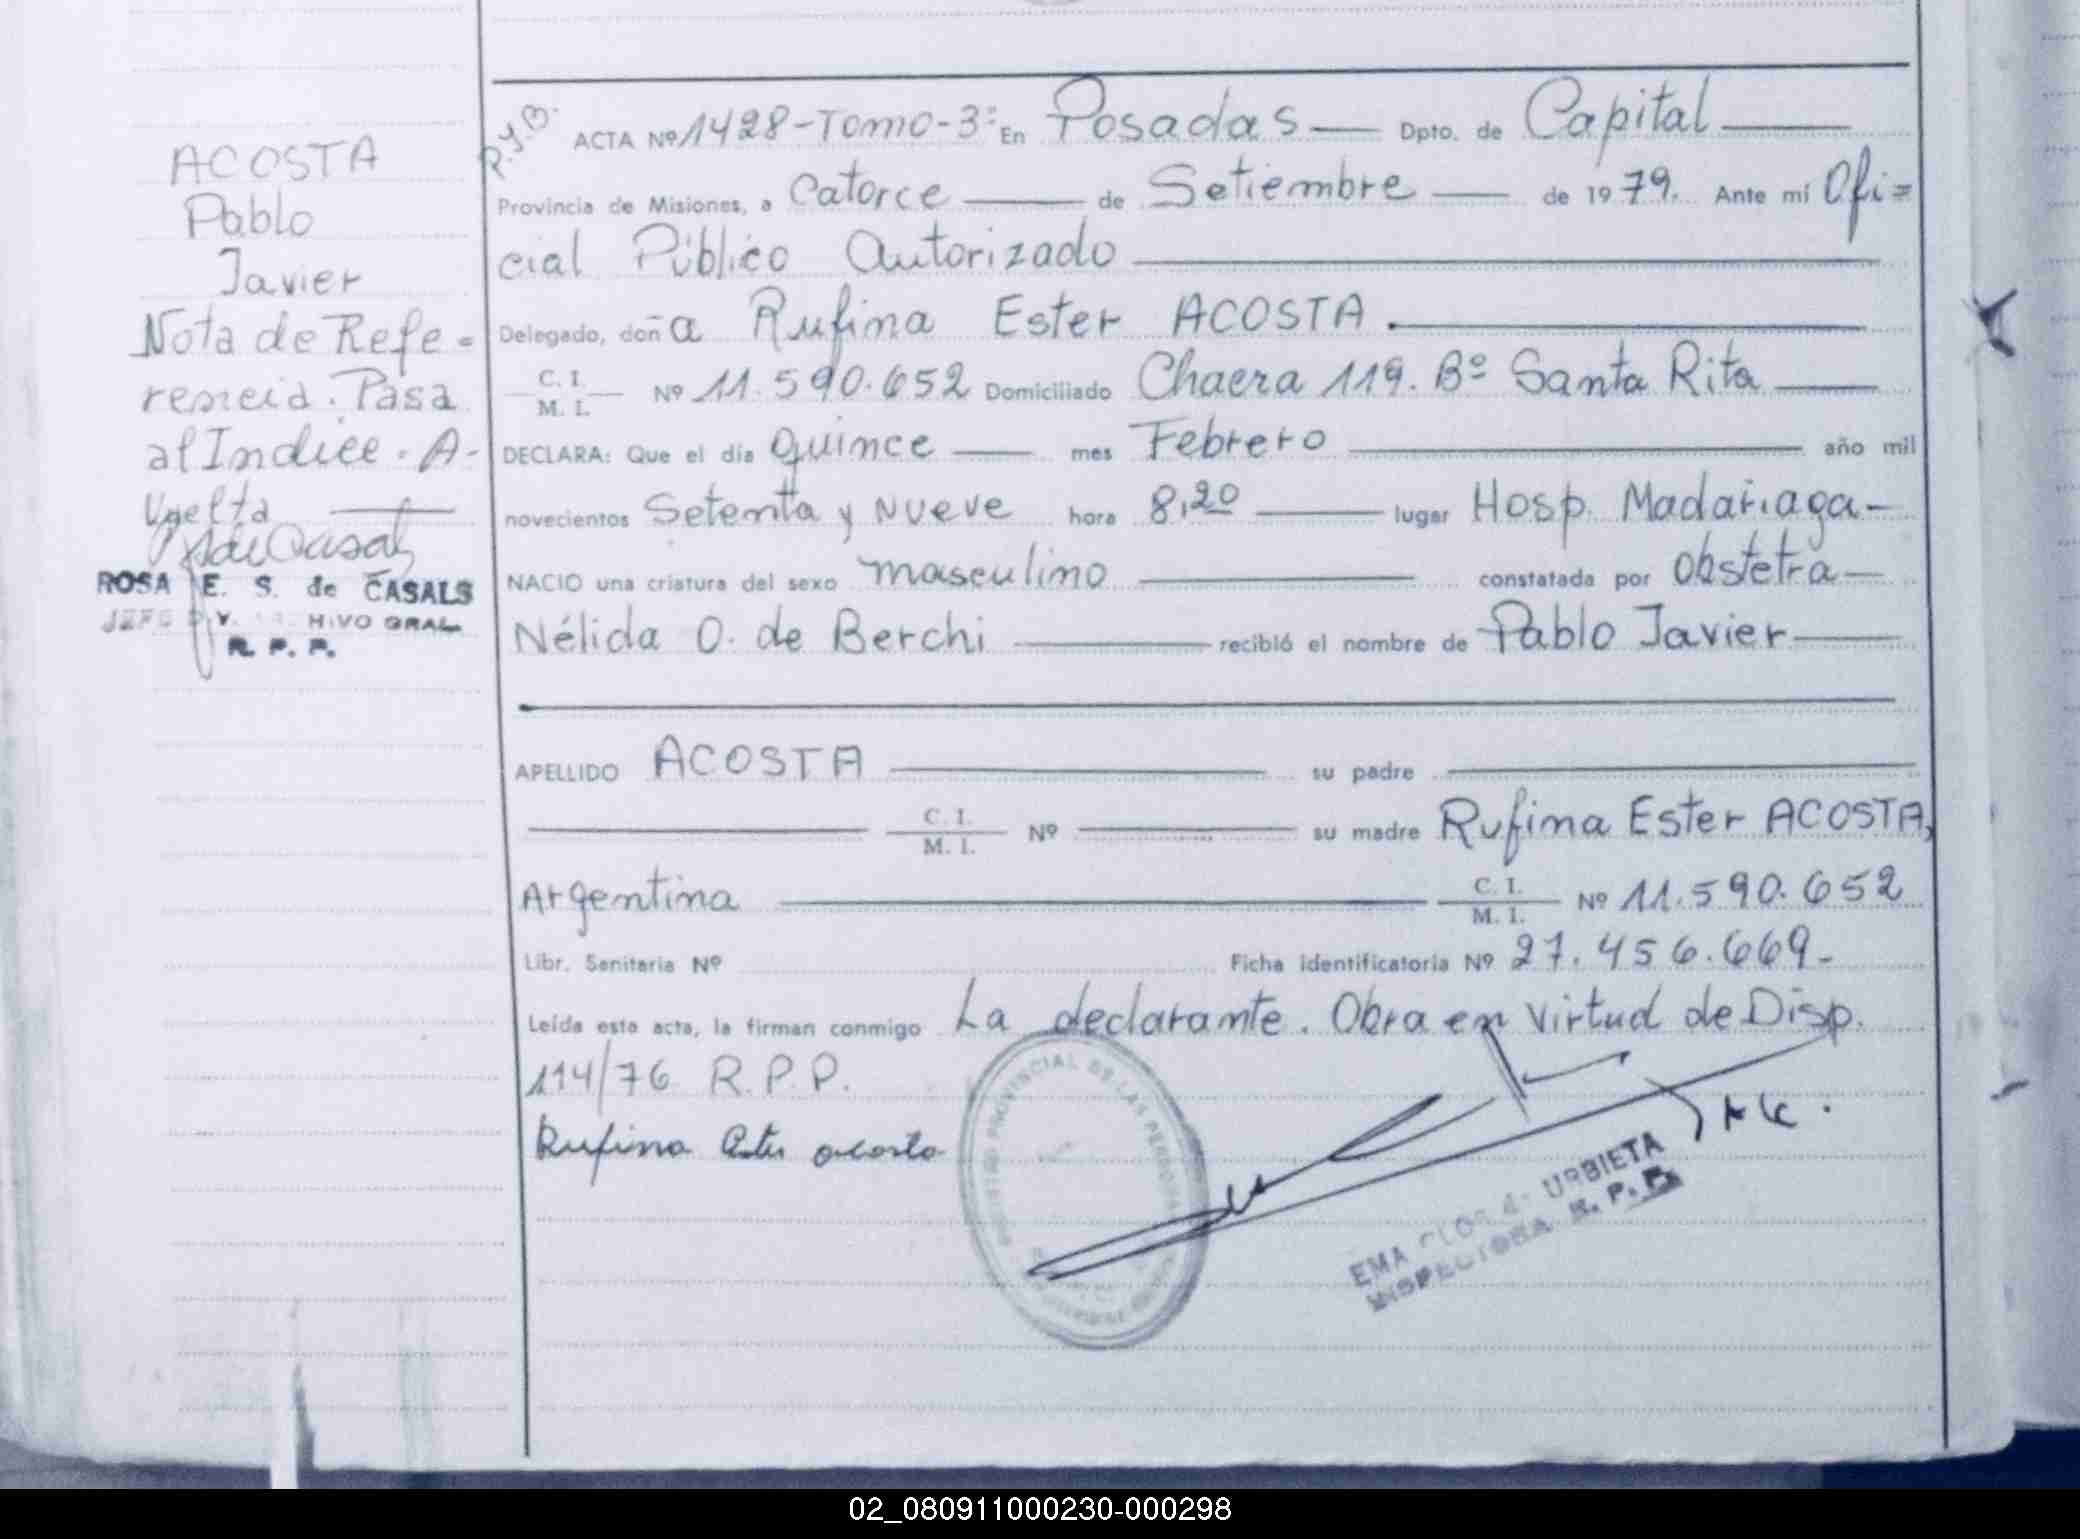 ACOSTA
Pablo
Javier
Nota de Refe=
rencia. Pasa
al Indice. A-
Vuelta
ROSA E. S. de CASALS
R. P. P.
R.y.B.
ACTA Nº 1428-Tomo-3º En Posadas Dpto. de Capital
Provincia de Misiones, a Catorce de Setiembre de 1979. Ante mí Ofi=
cial Público Autorizado
Delegado, doña Rufina Ester ACOSTA.
C. I.
M. I. Nº 11.590.652 Domiciliado Chacra 119. Bº Santa Rita
DECLARA: Que el día quince mes Febrero año mil
novecientos Setenta y Nueve hora 8,20 lugar Hosp. Madariaga-
NACIO una criatura del sexo masculino constatada por Obstetra
Nélida O. de Berchi recibió el nombre de Pablo Javier
APELLIDO ACOSTA su padre
C. I.
M. I. Nº su madre Rufina Ester ACOSTA,
Argentina C. I.
M. I. Nº 11.590.652
Libr. Sanitaria Nº Ficha identificatoria Nº 27.456.669-
Leída esta acta, la firman conmigo La declarante. Obra en virtud de Disp.
114/76 R.P.P.
Rufina Ester acosta
REGISTRO PROVINCIAL DE LAS PERSONAS
EMA URBIETA
INSPECTORA R. P. P.
02_080911000230-000298